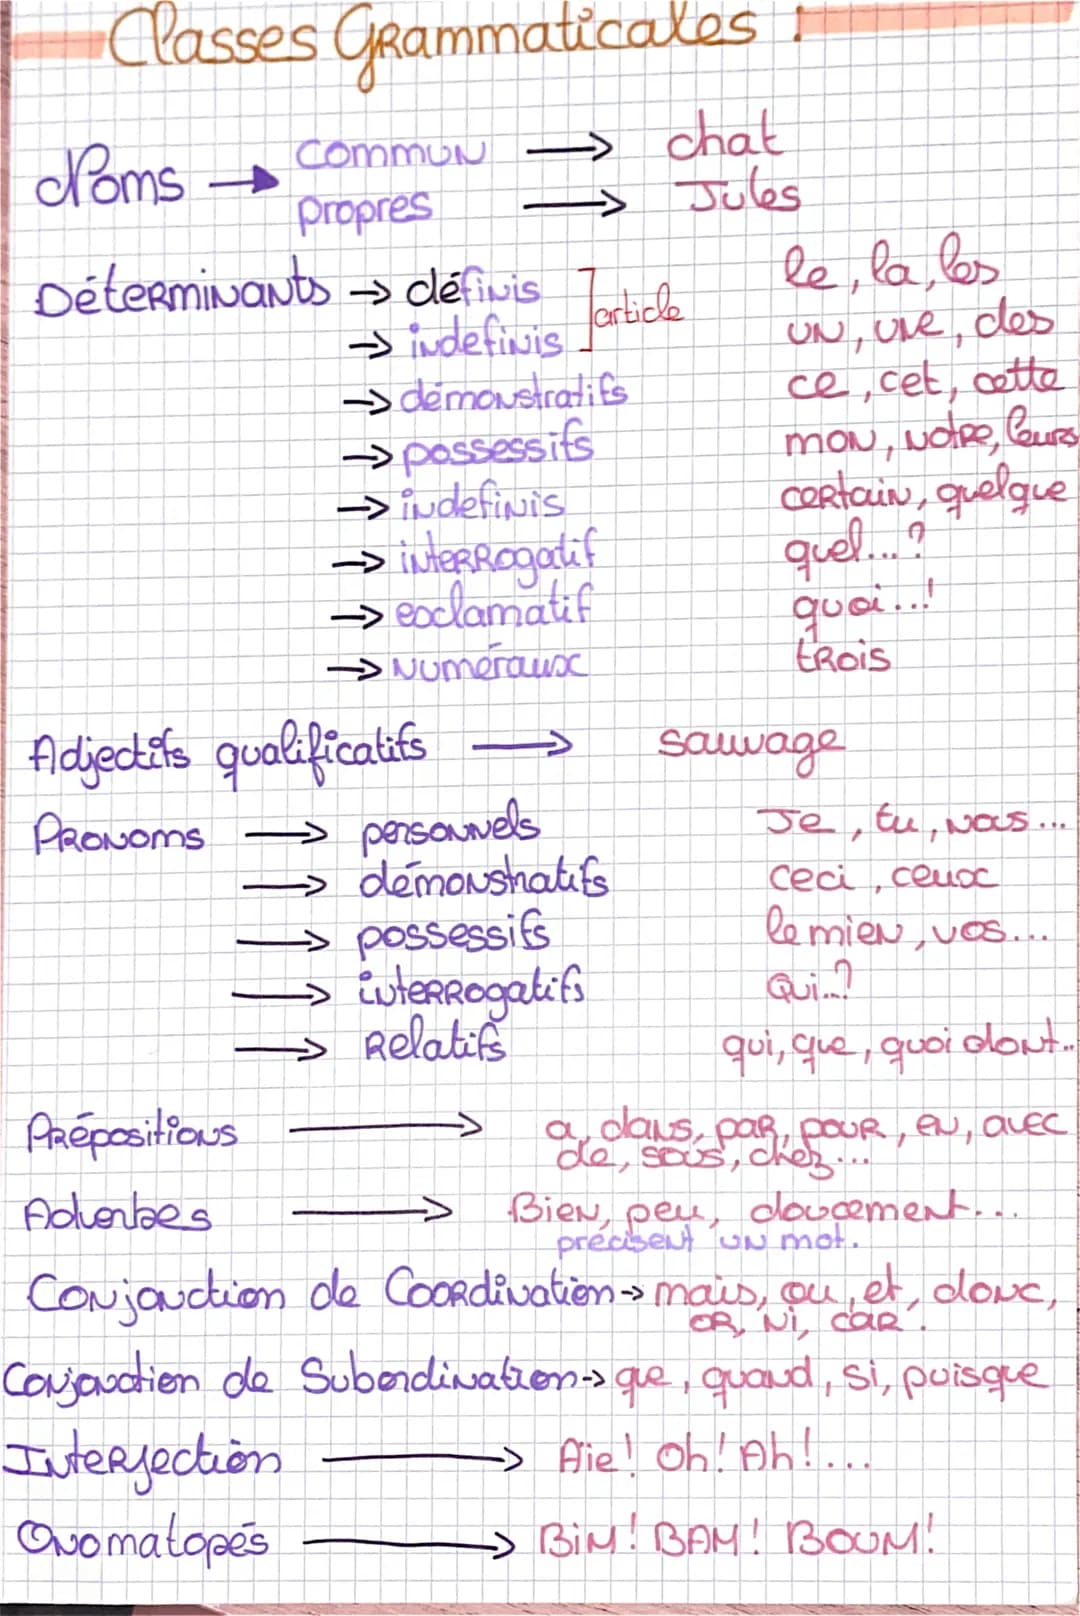 Classes Grammaticales :
Noms → commun → chat
propres → Jules
Déterminants → définis ] article le, la, les
→ indefinis un, une, des
→ démonstratifs ce, cet, cette
→ possessifs mon, notre, leurs
→ indefinis certain, quelque
→ interrogatif quel...?
→ exclamatif quoi...!
→ numéraux trois
Adjectifs qualificatifs → sauvage
Pronoms → personnels Je, tu, nous...
→ démonstratifs ceci, ceux
→ possessifs le mien, vos...
→ interrogatifs Qui..?
→ Relatifs qui, que, quoi dont..
Prépositions → a, dans, par, pour, en, avec
de, sous, chez...
Adverbes → Bien, peu, doucement...
précisent un mot.
Conjonction de Coordination → mais, ou, et, donc,
or, ni, car.
Conjonction de Subordination → que, quand, si, puisque
Interjection → Aïe! Oh! Ah!...
Onomatopés → BiM! BAM! BOUM!